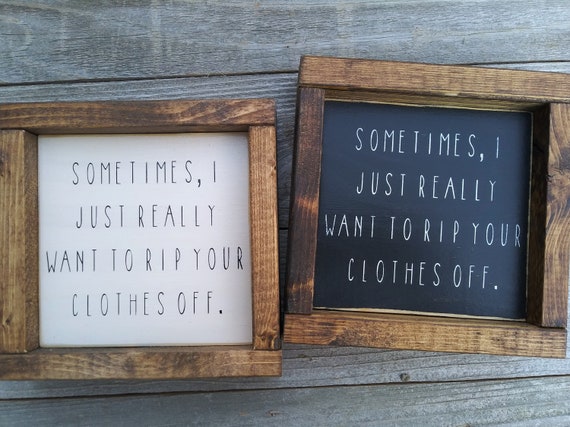 SOMETIMES, I
JUST REALLY
WANT TO RIP YOUR
CLOTHES OFF.
SOMETIMES, I
JUST REALLY
WANT TO RIP YOUR
CLOTHES OFF.